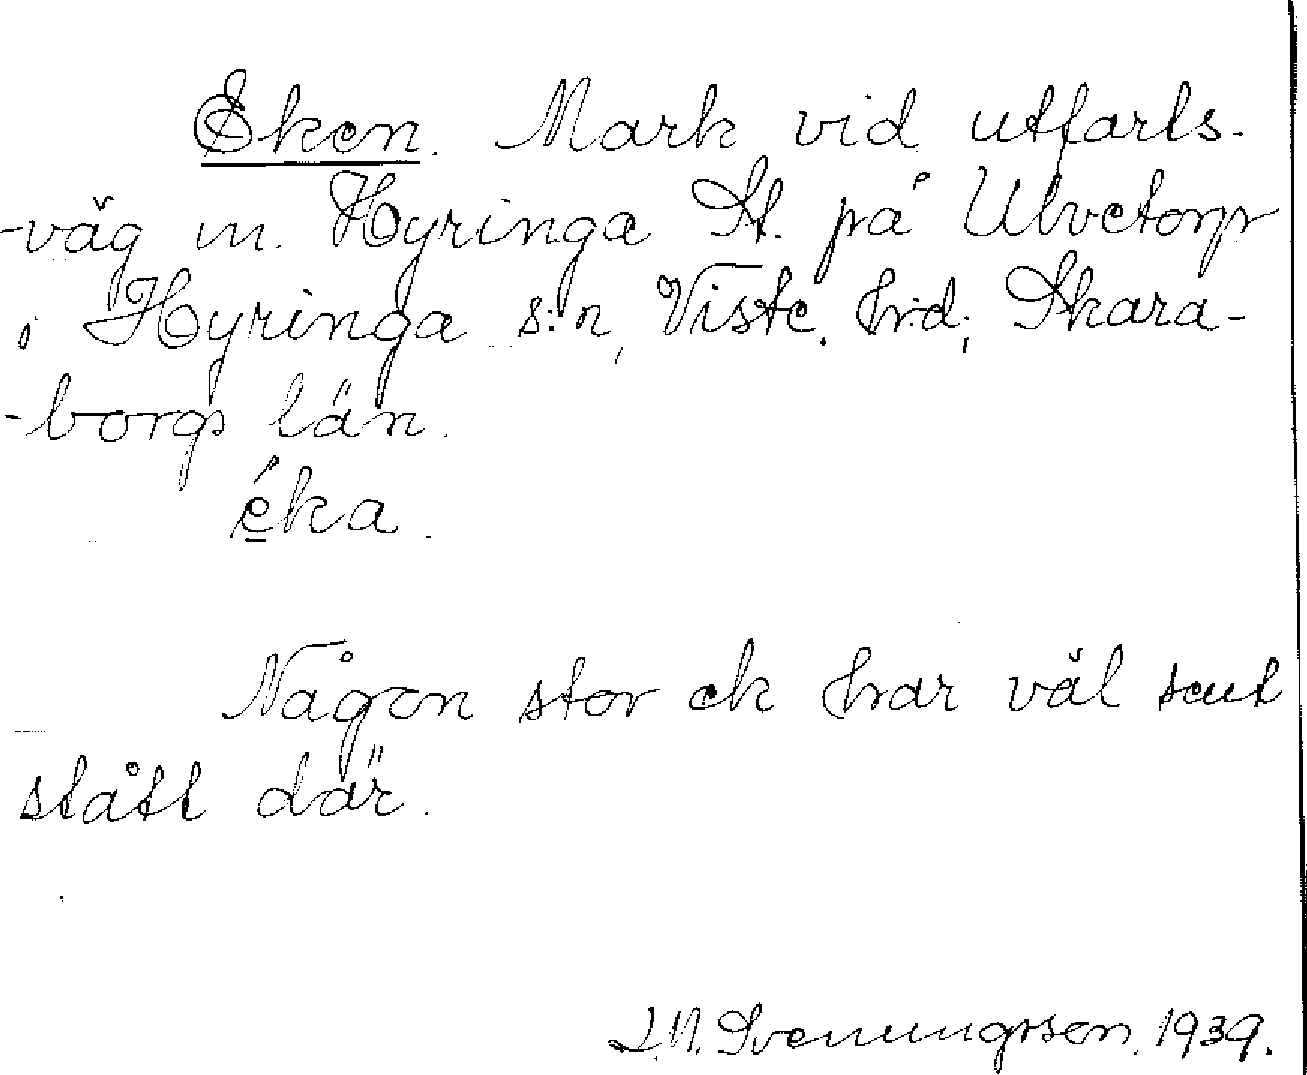 Eken. Mark vid utfarts-
-väg m. Hyringa St. på Ulvetorp
i Hyringa s:n, Viste hrd; Skara-
-borgs län.
éka.
Någon stor ek har väl
stått där.
J.N. Svenungsson. 1939.